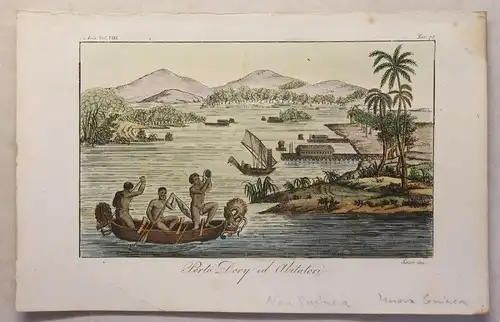 Asia Vol. VIII.
Tav. 79
Porto Dory ed Abitatori
Neu Guinea Nuova Guinea